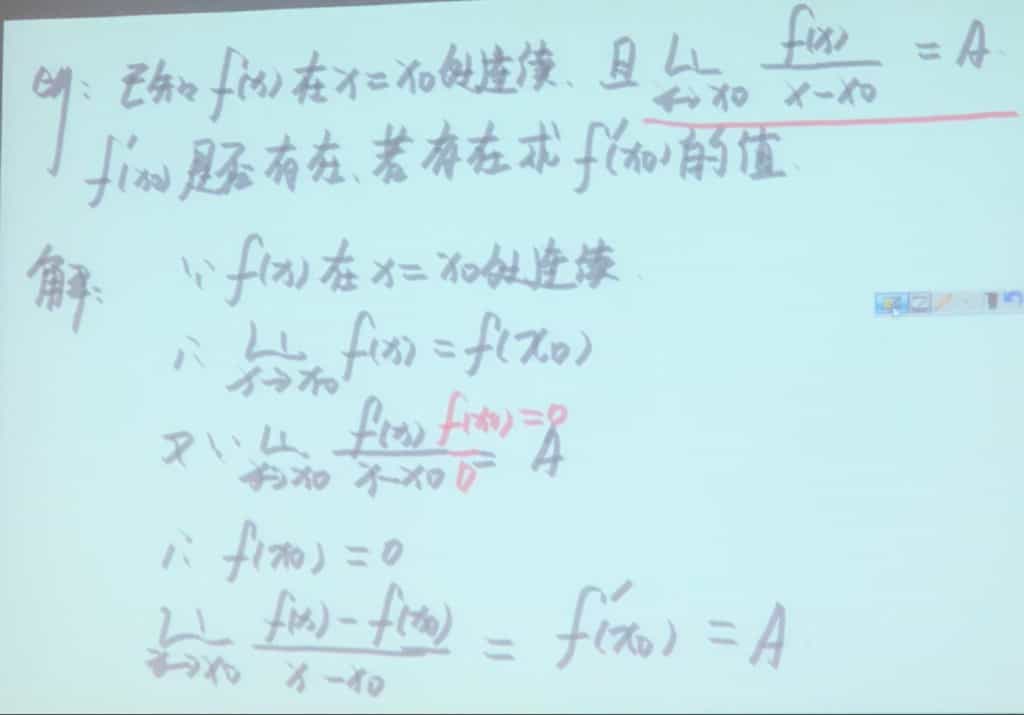 例：已知f(x)在x=x0处连续、且 Li x→x0 f(x)/(x-x0) = A
f'(x0)是否存在、若存在求f'(x0)的值.
解： ∵ f(x)在x=x0处连续.
∴ Li x→x0 f(x)=f(x0)
又∵ Li x→x0 f(x)/(x-x0) = A f(x0)=0 / 0
∴ f(x0)=0
Li x→x0 (f(x)-f(x0))/(x-x0) = f'(x0) = A